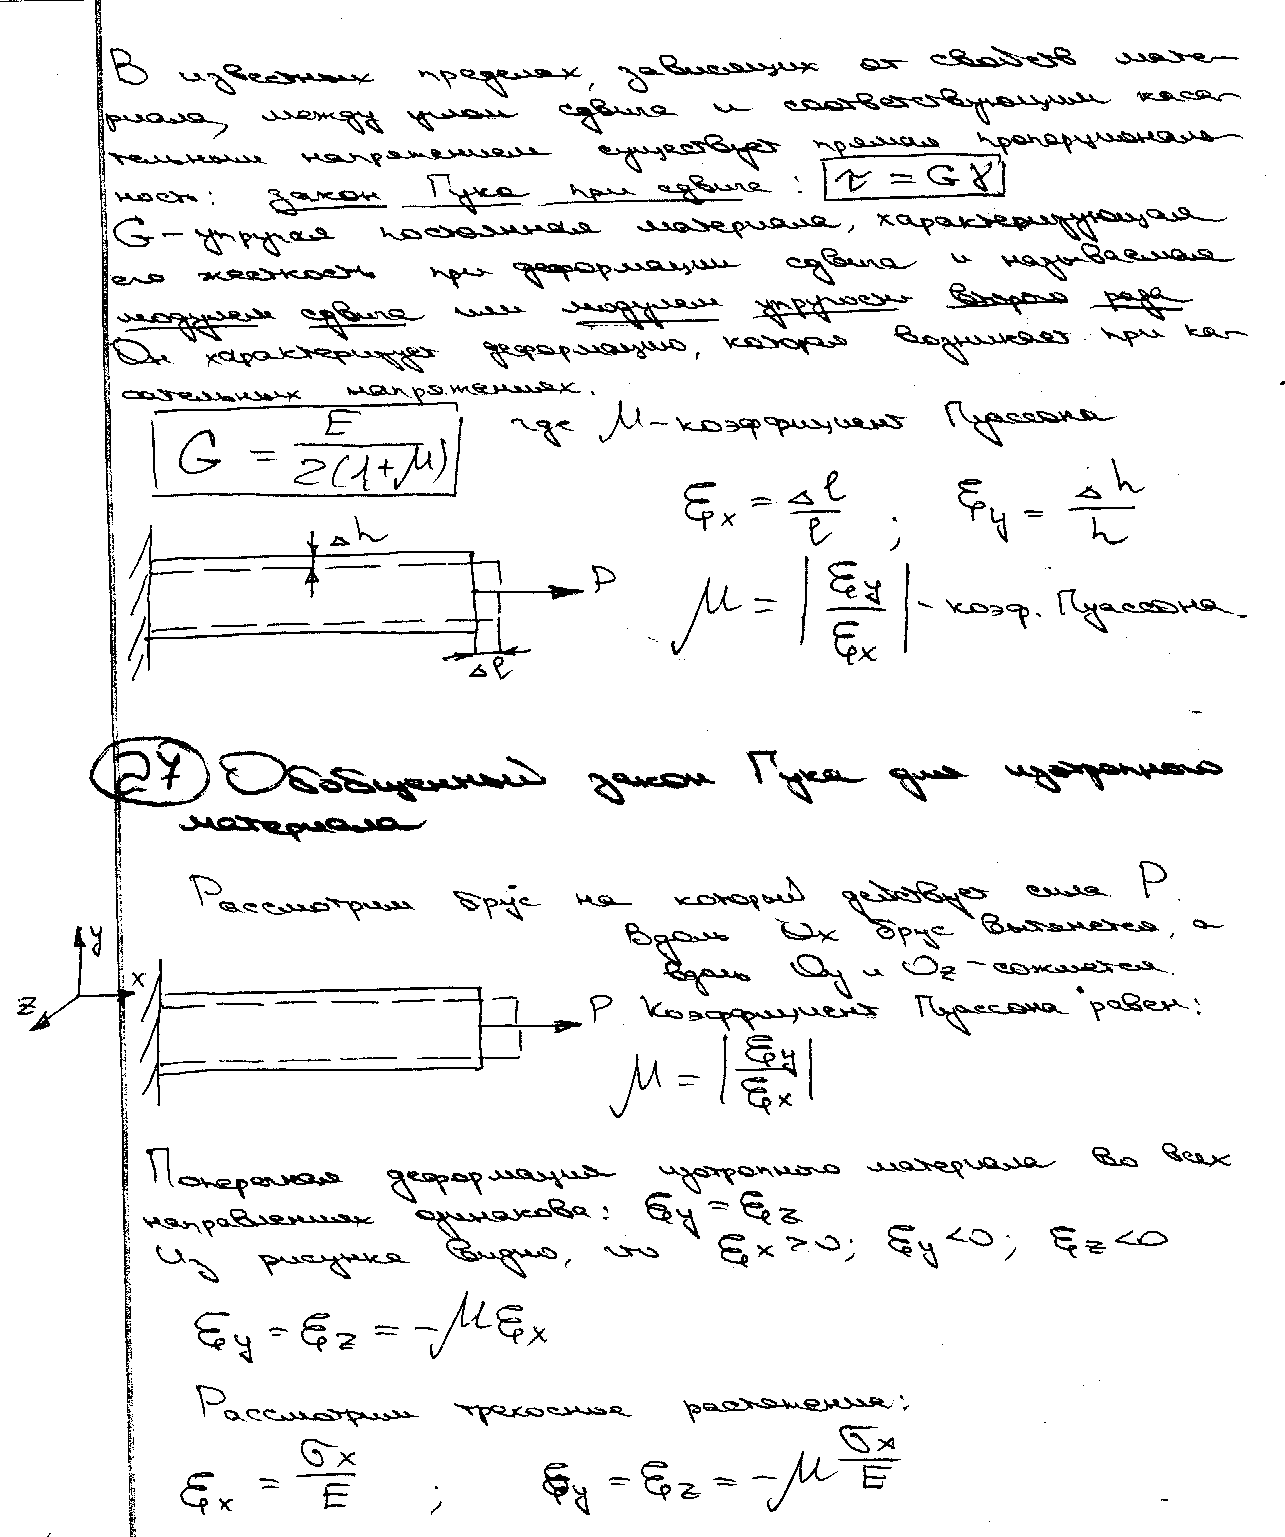 В известных пределах, зависящих от свойств мате-
риала, между углом сдвига и соответствующим каса-
тельным напряжением существует прямая пропорциональ-
ность: закон Гука при сдвиге: τ = Gγ
G – упругая постоянная материала, характеризующая
его жесткость при деформации сдвига и называемая
модулем сдвига или модулем упругости второго рода
Он характеризует деформацию, которая возникает при ка-
сательных напряжениях.
G = E / 2(1+μ) где μ – коэффициент Пуассона
ξx = Δl / l ; ξy = Δh / h
Δh
P
Δl
μ = |ξy / ξx| – коэф. Пуассона.
27 Обобщенный закон Гука для изотропного
материала
Рассмотрим брус на который действует сила P.
Вдоль Ox брус вытянется, а
вдоль Oy и Oz – сожмется.
y
x
z
P
Коэффициент Пуассона равен:
μ = |ξy / ξx|
Поперечная деформация изотропного материала во всех
направлениях одинакова: ξy = ξz
Из рисунка видно, что ξx > 0; ξy < 0; ξz < 0
ξy = ξz = –μξx
Рассмотрим трехосное растяжение:
ξx = σx / E ; ξy = ξz = –μ σx / E